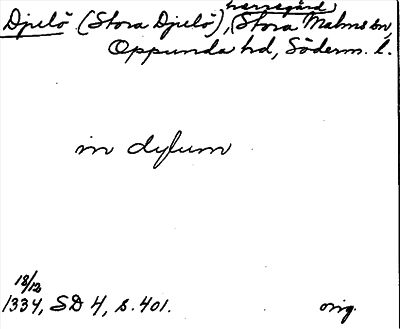 herregård,
Djulö (Stora Djulö), Stora Malms sn,
Oppunda hd, Söderm. l.
in dylum
18/12
1334, SD 4, s. 401. orig.